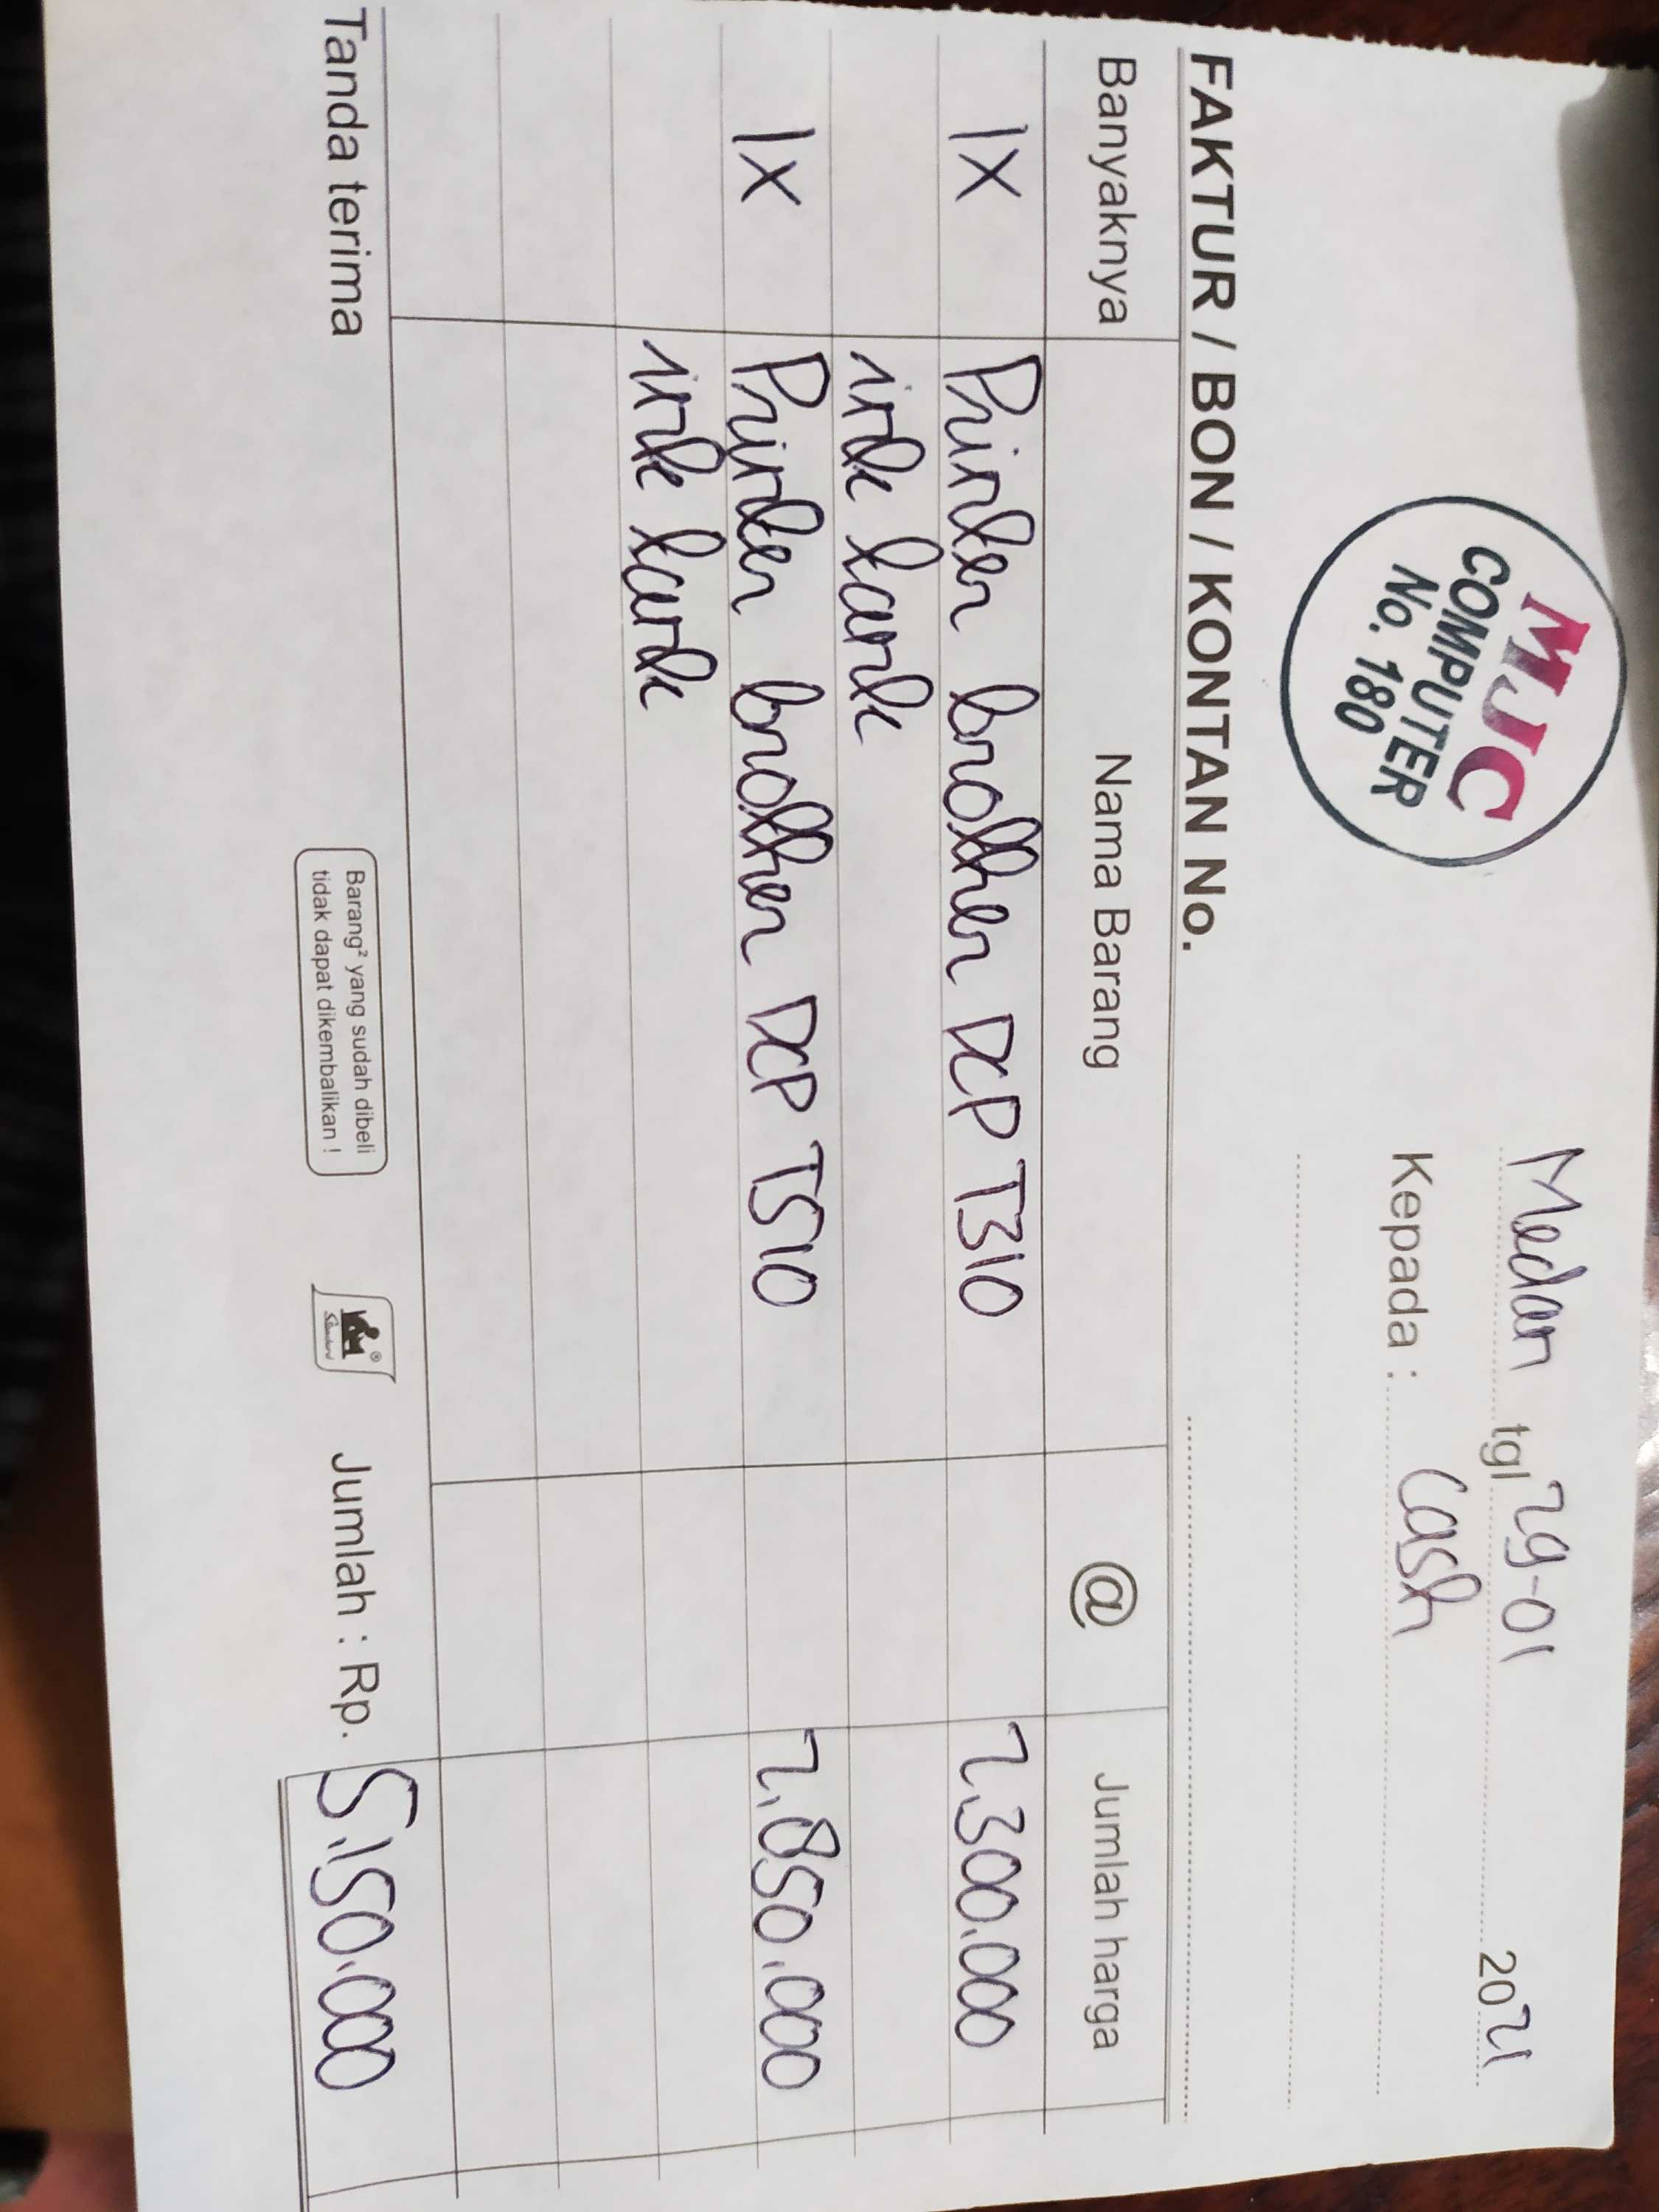 MJC
COMPUTER
No. 180
Medan tgl 29-01 2021
Kepada : Cash
FAKTUR / BON / KONTAN No.
Banyaknya Nama Barang @ Jumlah harga
1x Printer brother DCP T310 2.300.000
ink tank
1x Printer brother DCP T510 2.850.000
ink tank
Tanda terima
Barang² yang sudah dibeli
tidak dapat dikembalikan !
Standard
Jumlah : Rp. 5.150.000